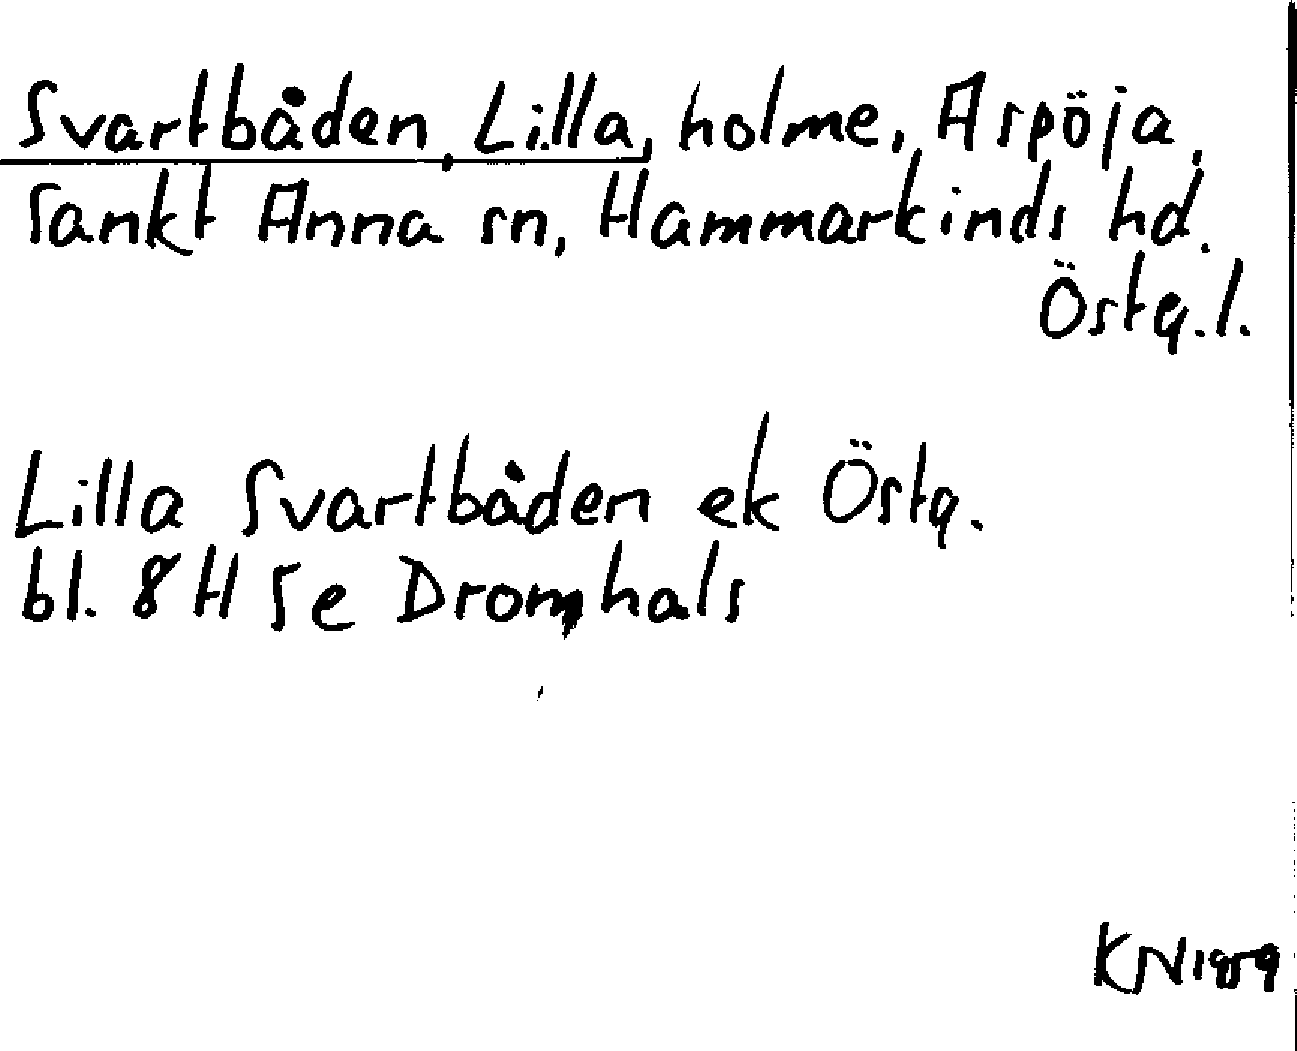 Svartbåden, Lilla, holme, Aspöja,
Sankt Anna sn, Hammarkinds hd.
Östg.l.
Lilla Svartbåden ek Östg.
bl. 8H 5e Dromhals